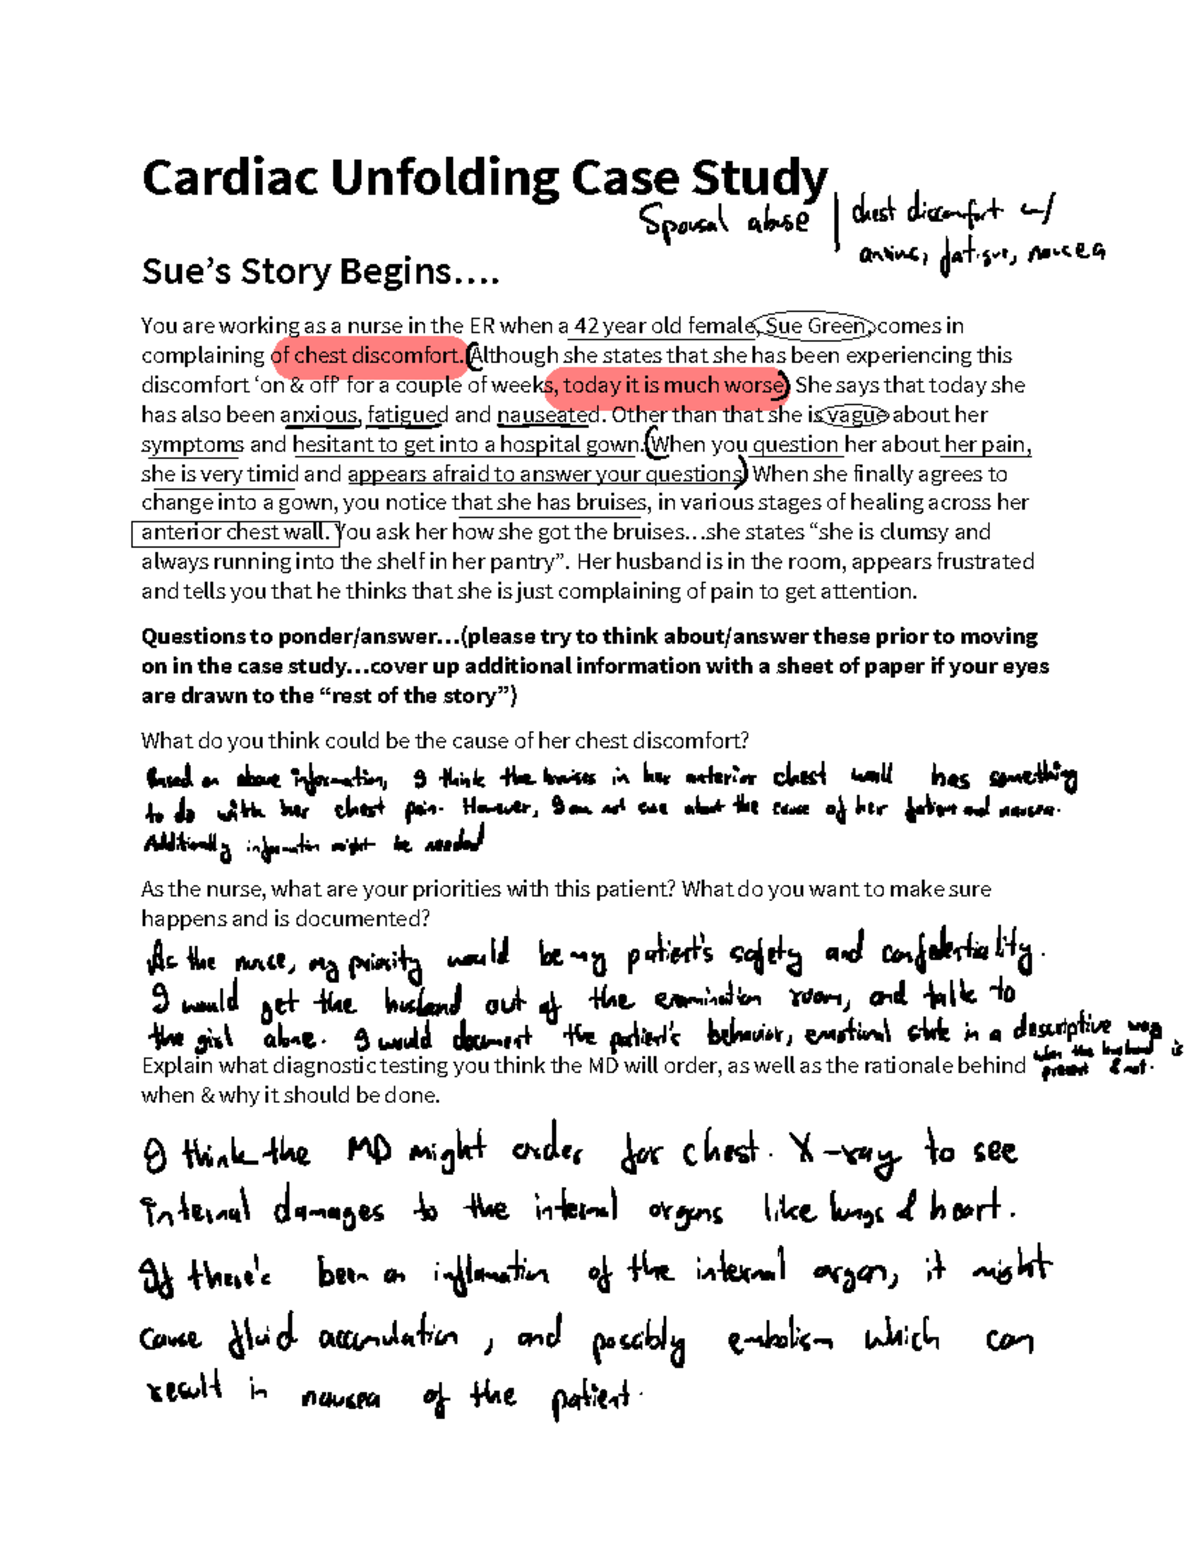 Cardiac Unfolding Case Study
Spousal abuse | chest discomfort w/
anxious, fatigue, nausea
Sue’s Story Begins….
You are working as a nurse in the ER when a 42 year old female, Sue Green, comes in
complaining of chest discomfort. (Although she states that she has been experiencing this
discomfort ‘on & off’ for a couple of weeks, today it is much worse) She says that today she
has also been anxious, fatigued and nauseated. Other than that she is vague about her
symptoms and hesitant to get into a hospital gown. (When you question her about her pain,
she is very timid and appears afraid to answer your questions) When she finally agrees to
change into a gown, you notice that she has bruises, in various stages of healing across her
anterior chest wall. You ask her how she got the bruises…she states “she is clumsy and
always running into the shelf in her pantry”. Her husband is in the room, appears frustrated
and tells you that he thinks that she is just complaining of pain to get attention.
Questions to ponder/answer…(please try to think about/answer these prior to moving
on in the case study…cover up additional information with a sheet of paper if your eyes
are drawn to the “rest of the story”)
What do you think could be the cause of her chest discomfort?
Based on above information, I think the bruises in her anterior chest wall has something
to do with her chest pain. However, I am not sure about the cause of her fatigue and nausea.
Additionally information might be needed
As the nurse, what are your priorities with this patient? What do you want to make sure
happens and is documented?
As the nurse, my priority would be my patient's safety and confidentiality.
I would get the husband out of the examination room, and talk to
the girl alone. I would document the patient's behavior, emotional state in a descriptive way
when the husband is
present & not.
Explain what diagnostic testing you think the MD will order, as well as the rationale behind
when & why it should be done.
I think the MD might order for chest. X-ray to see
internal damages to the internal organs like lungs & heart.
If there's been an inflamation of the internal organ, it might
cause fluid accumulation, and possibly embolism which can
result in nausea of the patient.